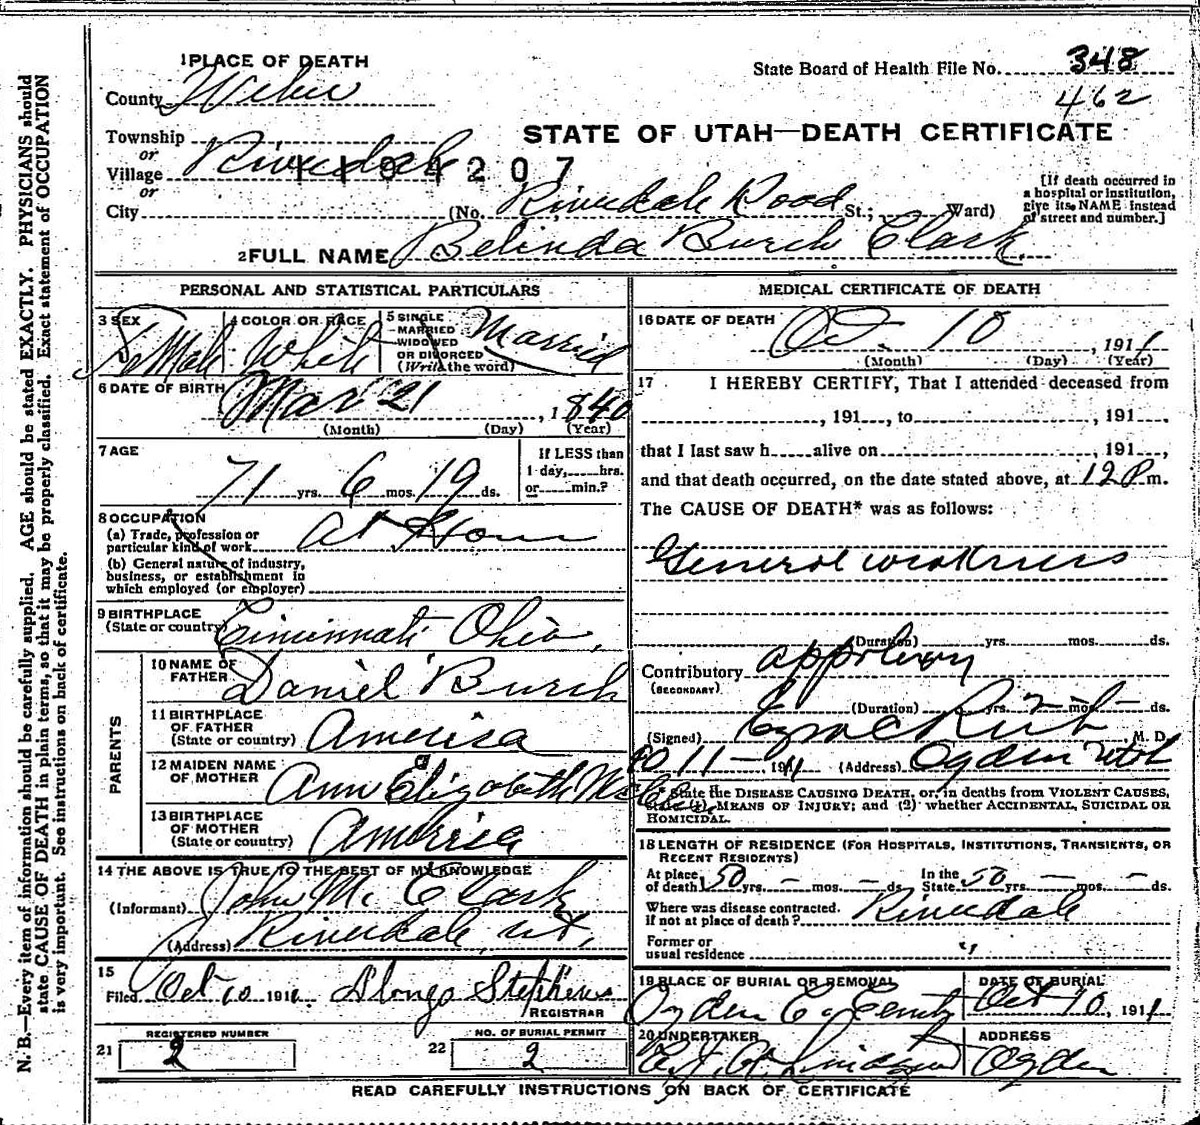 1 PLACE OF DEATH
State Board of Health File No. 348
County Weber
462
Township
or
STATE OF UTAH—DEATH CERTIFICATE
Village Riverdale
1194207
or
City (No. Riverdale Road St.; Ward)
[If death occurred in
a hospital or institution,
give its NAME instead
of street and number.]
2 FULL NAME Belinda Burch Clark
PERSONAL AND STATISTICAL PARTICULARS
3 SEX Female
4 COLOR OR RACE White
5 SINGLE
MARRIED
WIDOWED
OR DIVORCED
(Write the word)
Married
6 DATE OF BIRTH
Mar 21, 1840
(Month) (Day) (Year)
7 AGE
71 yrs. 6 mos. 19 ds.
If LESS than
1 day, hrs.
or min.?
8 OCCUPATION
(a) Trade, profession or
particular kind of work At Home
(b) General nature of industry,
business, or establishment in
which employed (or employer)
9 BIRTHPLACE
(State or country) Cincinnati Ohio,
PARENTS
10 NAME OF
FATHER Daniel Burch
11 BIRTHPLACE
OF FATHER
(State or country) America
12 MAIDEN NAME
OF MOTHER Ann Elizabeth
13 BIRTHPLACE
OF MOTHER
(State or country) America
14 THE ABOVE IS TRUE TO THE BEST OF MY KNOWLEDGE
(Informant) John M. Clark
(Address) Riverdale, Ut.
15
Filed Oct 10 1911. Alonzo Stephens
REGISTRAR
21 REGISTERED NUMBER
2
22 NO. OF BURIAL PERMIT
2
MEDICAL CERTIFICATE OF DEATH
16 DATE OF DEATH Oct. 10, 1911
(Month) (Day) (Year)
17 I HEREBY CERTIFY, That I attended deceased from
, 191 , to , 191 ,
that I last saw h alive on , 191 ,
and that death occurred, on the date stated above, at 12 P m.
The CAUSE OF DEATH* was as follows:
General weakness
(Duration) yrs. mos. ds.
Contributory appolexy
(SECONDARY)
(Duration) yrs. mos. ds.
(Signed) M. D.
10 11 — 1911 (Address) Ogden Utah
* State the DISEASE CAUSING DEATH, or, in deaths from VIOLENT CAUSES,
state (1) MEANS OF INJURY; and (2) whether ACCIDENTAL, SUICIDAL OR
HOMICIDAL.
18 LENGTH OF RESIDENCE (FOR HOSPITALS, INSTITUTIONS, TRANSIENTS, OR
RECENT RESIDENTS)
At place
of death 50 yrs. — mos. — ds.
In the
State 50 yrs. — mos. — ds.
Where was disease contracted.
if not at place of death? Riverdale
Former or
usual residence "
19 PLACE OF BURIAL OR REMOVAL
Ogden Cy Cemty
DATE OF BURIAL
Oct 10, 1911
20 UNDERTAKER
ADDRESS
Ogden
READ CAREFULLY INSTRUCTIONS ON BACK OF CERTIFICATE
N. B.—Every item of information should be carefully supplied. AGE should be stated EXACTLY. PHYSICIANS should
state CAUSE OF DEATH in plain terms, so that it may be properly classified. Exact statement of OCCUPATION
is very important. See instructions on back of certificate.